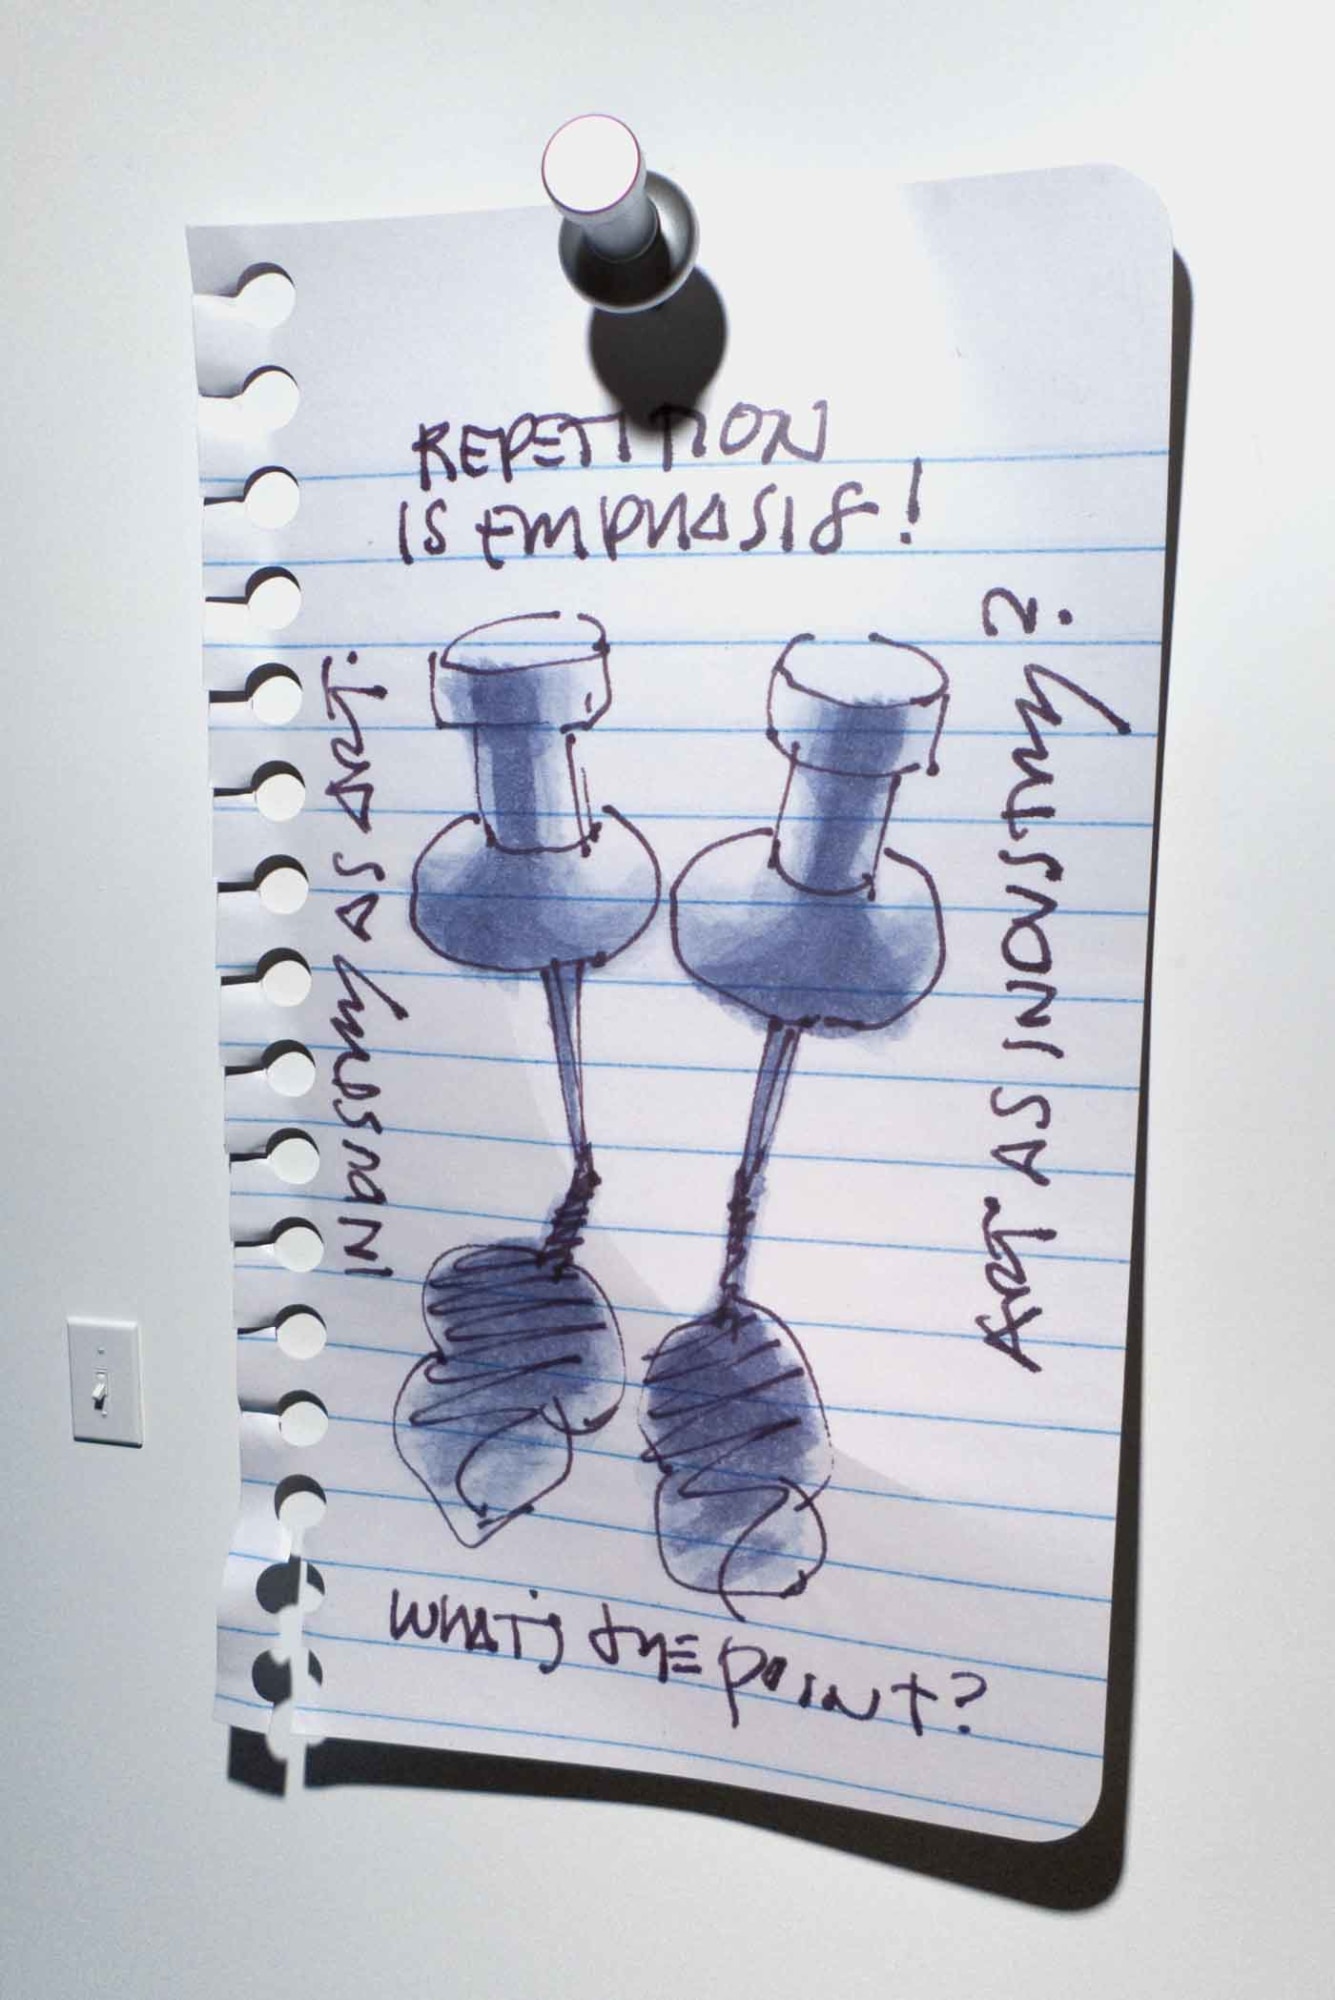 REPETITION
IS EMPHASIS!
INDUSTRY AS ART.
ART AS INDUSTRY?
WHAT'S THE POINT?